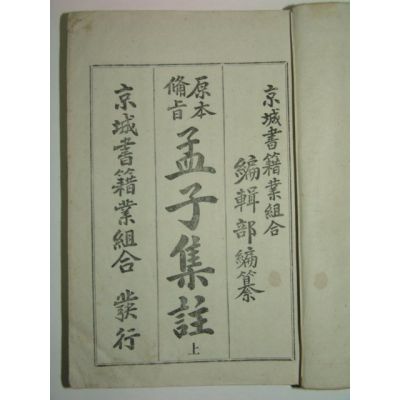 京城書籍業組合
編輯部編纂
原本
備旨
孟子集註
上
京城書籍業組合 發行